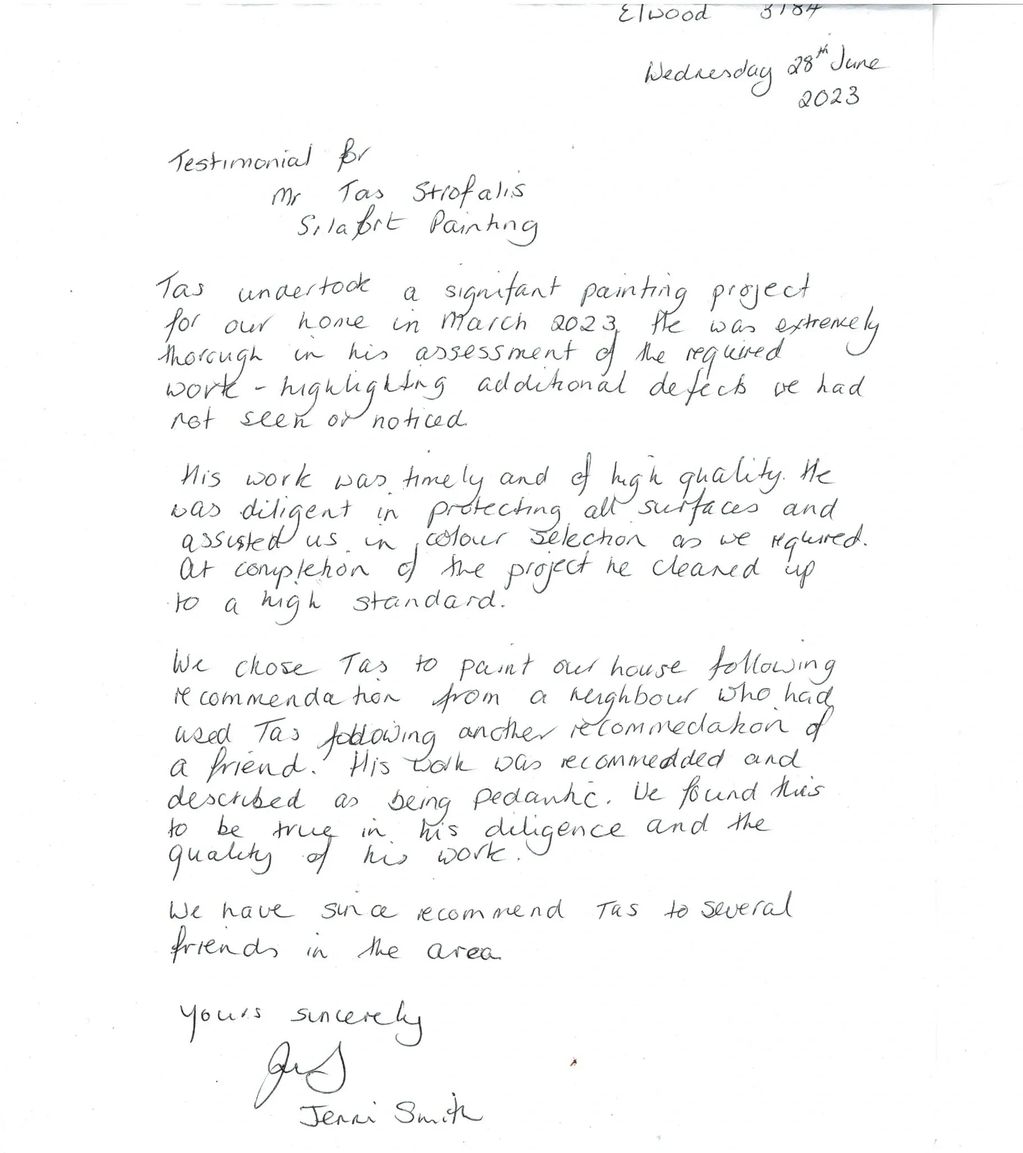 Elwood 3184
Wednesday 28th June
2023
Testimonial for
Mr Tas Strofalis
Silafort Painting
Tas undertook a signifant painting project
for our home in March 2023. He was extremely
thorough in his assessment of the required
work - highlighting additional defects we had
not seen or noticed.
His work was timely and of high quality. He
was diligent in protecting all surfaces and
assisted us in colour selection as we required.
At completion of the project he cleaned up
to a high standard.
We chose Tas to paint our house following
recommendation from a neighbour who had
used Tas following another recommedation of
a friend. His work was recommedded and
described as being pedantic. We found this
to be true in his diligence and the
quality of his work.
We have since recommend Tas to several
friends in the area.
Yours sincerely
Jenni Smith